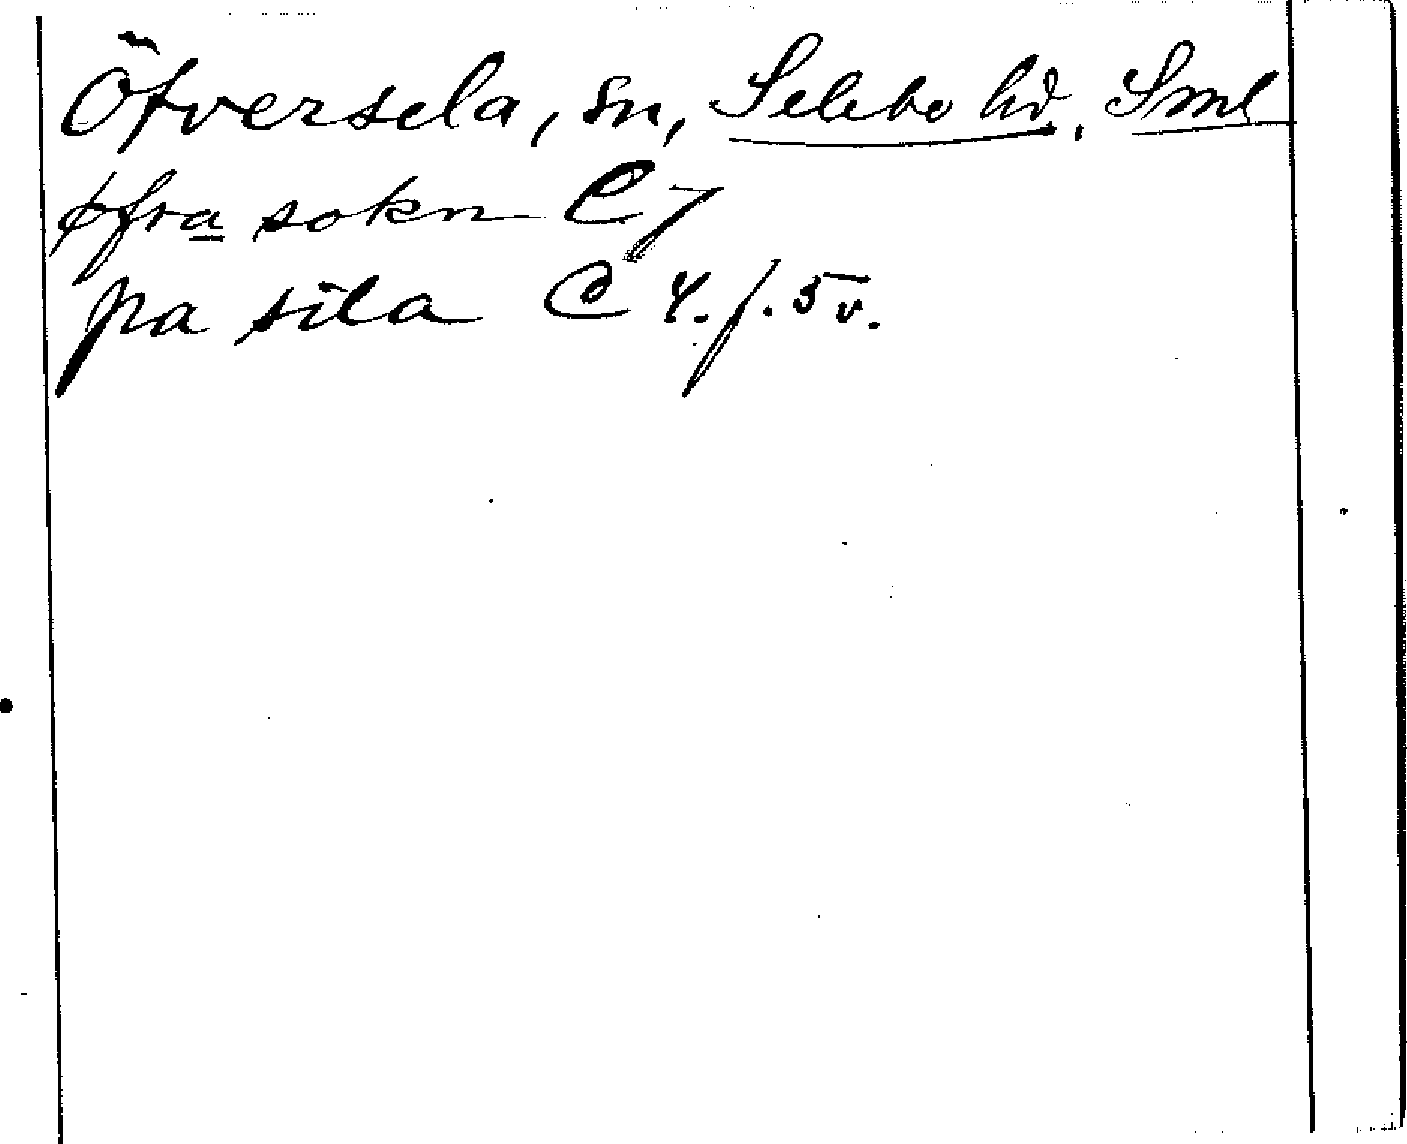 Öfversela, sn, Selebo hd. Sml
øfra sokn C 7
pa sila C 4. f. 5 v.